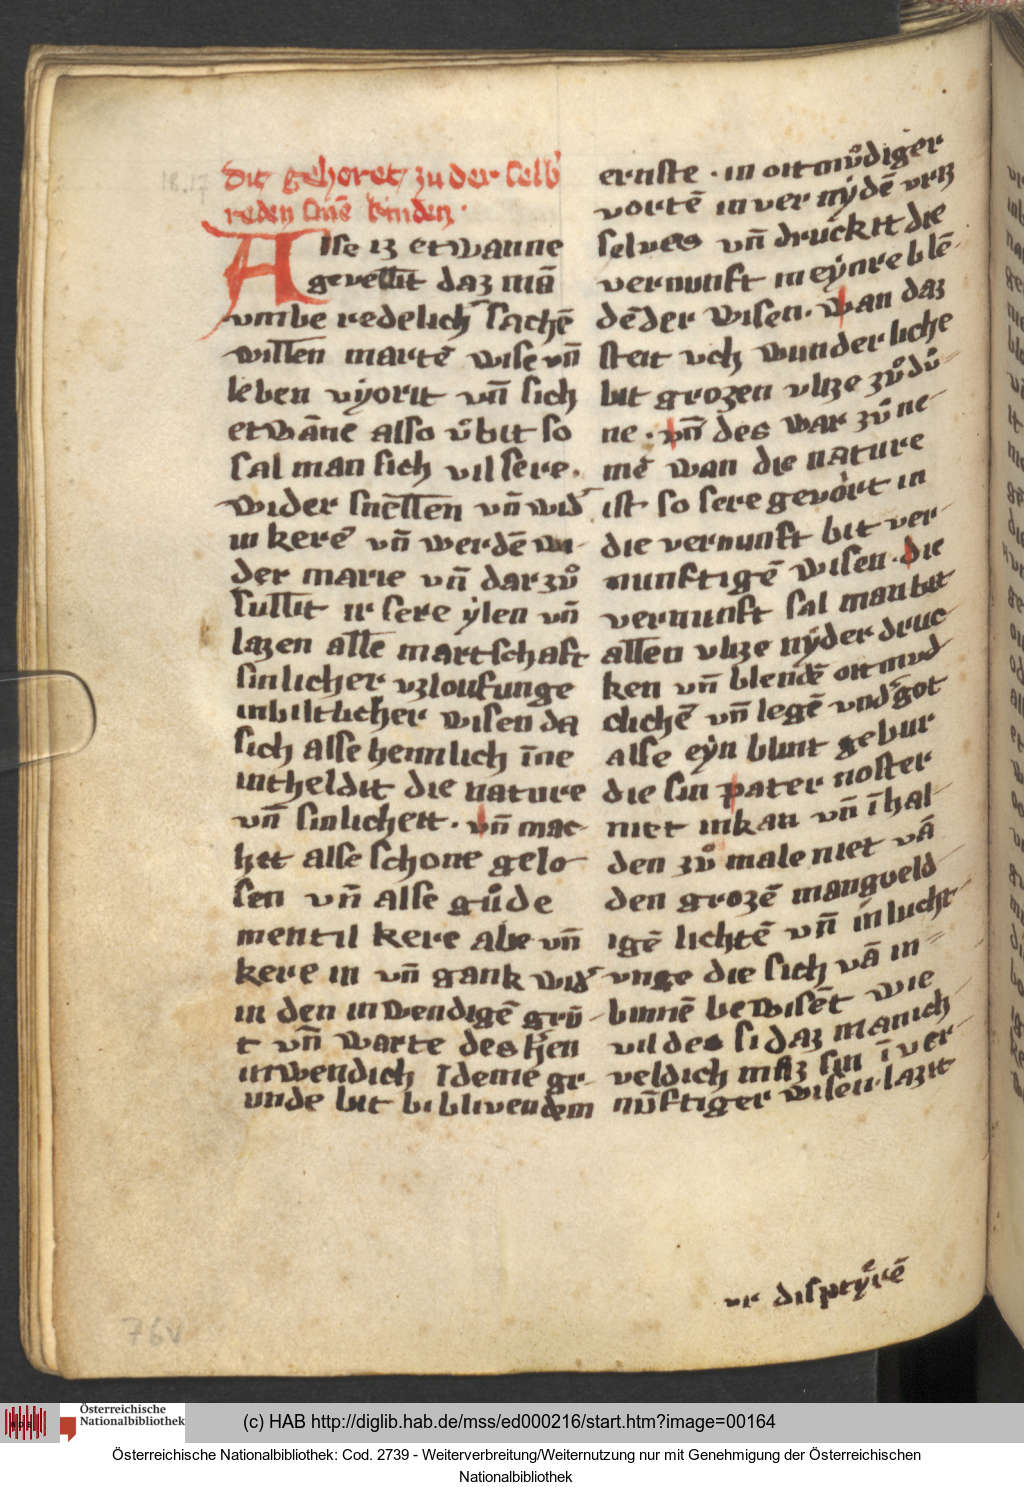 18.17
Dit gehoret zu der selb'
reden sine kinden.
Alse iz etwanne
gevellit daz mā
vmbe redelich sachē
willen martē wise vn̄
leben vv̇orit vn̄ sich
etwāne also v̊bit so
sal man sich vil sere.
wider snellen vn̄ wid'
in kerē vn̄ werdē wi-
der marie vn̄ dar zv̊
sullit ir sere ẏlen vn̄
lazen alle martschaft
sinlicher vzloufunge
inbiltlicher wisen da
sich alse heimlich īne
intheldit die nature
vn̄ sinlicheit. vn̄ mac-
hit alse schone gelo-
sen vn̄ alse gůde
mentil kere abe vn̄
kere in vn̄ gank wid'
in den inwendigē grū-
t vn̄ warte des h'en
inwendich īdeme gr-
unde bit bi blivendem
ernste. in oitmv̊diger
vortē in ver nẏdē vriz
selues vn̄ druckit die
vernunft in eẏnre blē-
dē der wisen. wan daz
steit vch wunderliche
bit grozen vlize zv̊ dv̊-
ne. vn̄ des war zv̊ ne-
mē wan die nature
ist so sere gevort in
die vernunft bit ver-
nunftigē wisen. die
vernunft sal man bit
allen vlize nẏder druc-
ken vn̄ blendē oitmvd-
clichē vn̄ legē vnd' got
alse eẏn blint gebur
die sin pater noster
niet inkan vn̄ īhal-
den zv̊ male niet vā
den grozē mangveld-
igē lichtē vn̄ inlucht-
unge die sich vā in-
binnē bewisēt wie
vil des si daz manich-
veldich infiz sin ī ver-
nūftiger wisen. lazit
vr disptẏrē
76v
Österreichische
Nationalbibliothek
(c) HAB http://diglib.hab.de/mss/ed000216/start.htm?image=00164
Österreichische Nationalbibliothek: Cod. 2739 - Weiterverbreitung/Weiternutzung nur mit Genehmigung der Österreichischen
Nationalbibliothek